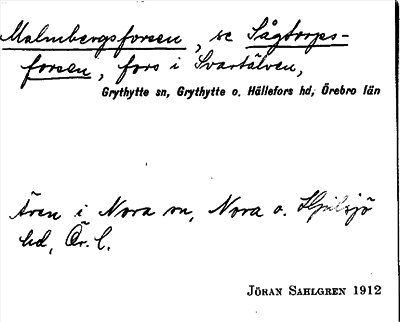 Malmbergsforsen, se Sågtorps-
forsen, fors i Svartälven,
Grythytte sn, Grythytte o. Hällefors hd, Örebro län
Även i Nora sn, Nora o. Hjulsjö
hd, Ör. l.
JÖRAN SAHLGREN 1912